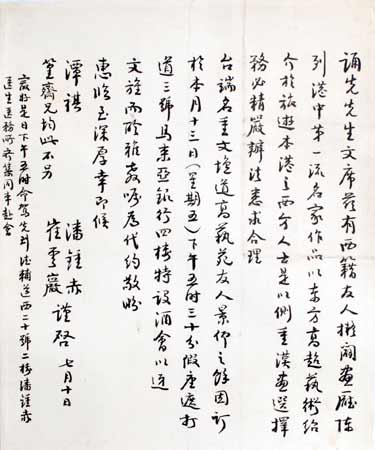 誦先先生文席茲有西籍友人擬闢畫廳陳
列港中第一流名家作品以東方高超藝術紹
介於旅遊本港之西方人士是以側重漢畫選擇
務必精嚴辦法悉求合理
台端名重文壇道高藝苑友人景仰之餘因訂
於本月十三日(星期五)下午五時三十分假座遮打
道三號馬來亞銀行四樓特設酒會以迓
文旌而聆雅教囑為代約敬盼
惠臨至深厚幸即候
譚祺 潘 赤
崔 巖 謹啓 七月十日
篁齋兄均此不另
嚴好是日下午五時命駕先到德輔道西二十號二樓潘 赤
醫生醫務所齊集同車赴會